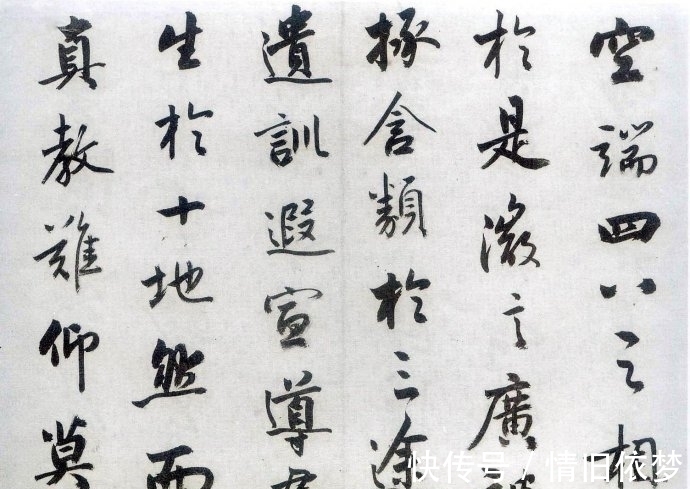 空端四八之相
於是微言廣
拯含類於三途
遺訓遐宣導
生於十地然而
真教難仰莫
快传号 / 情旧依梦